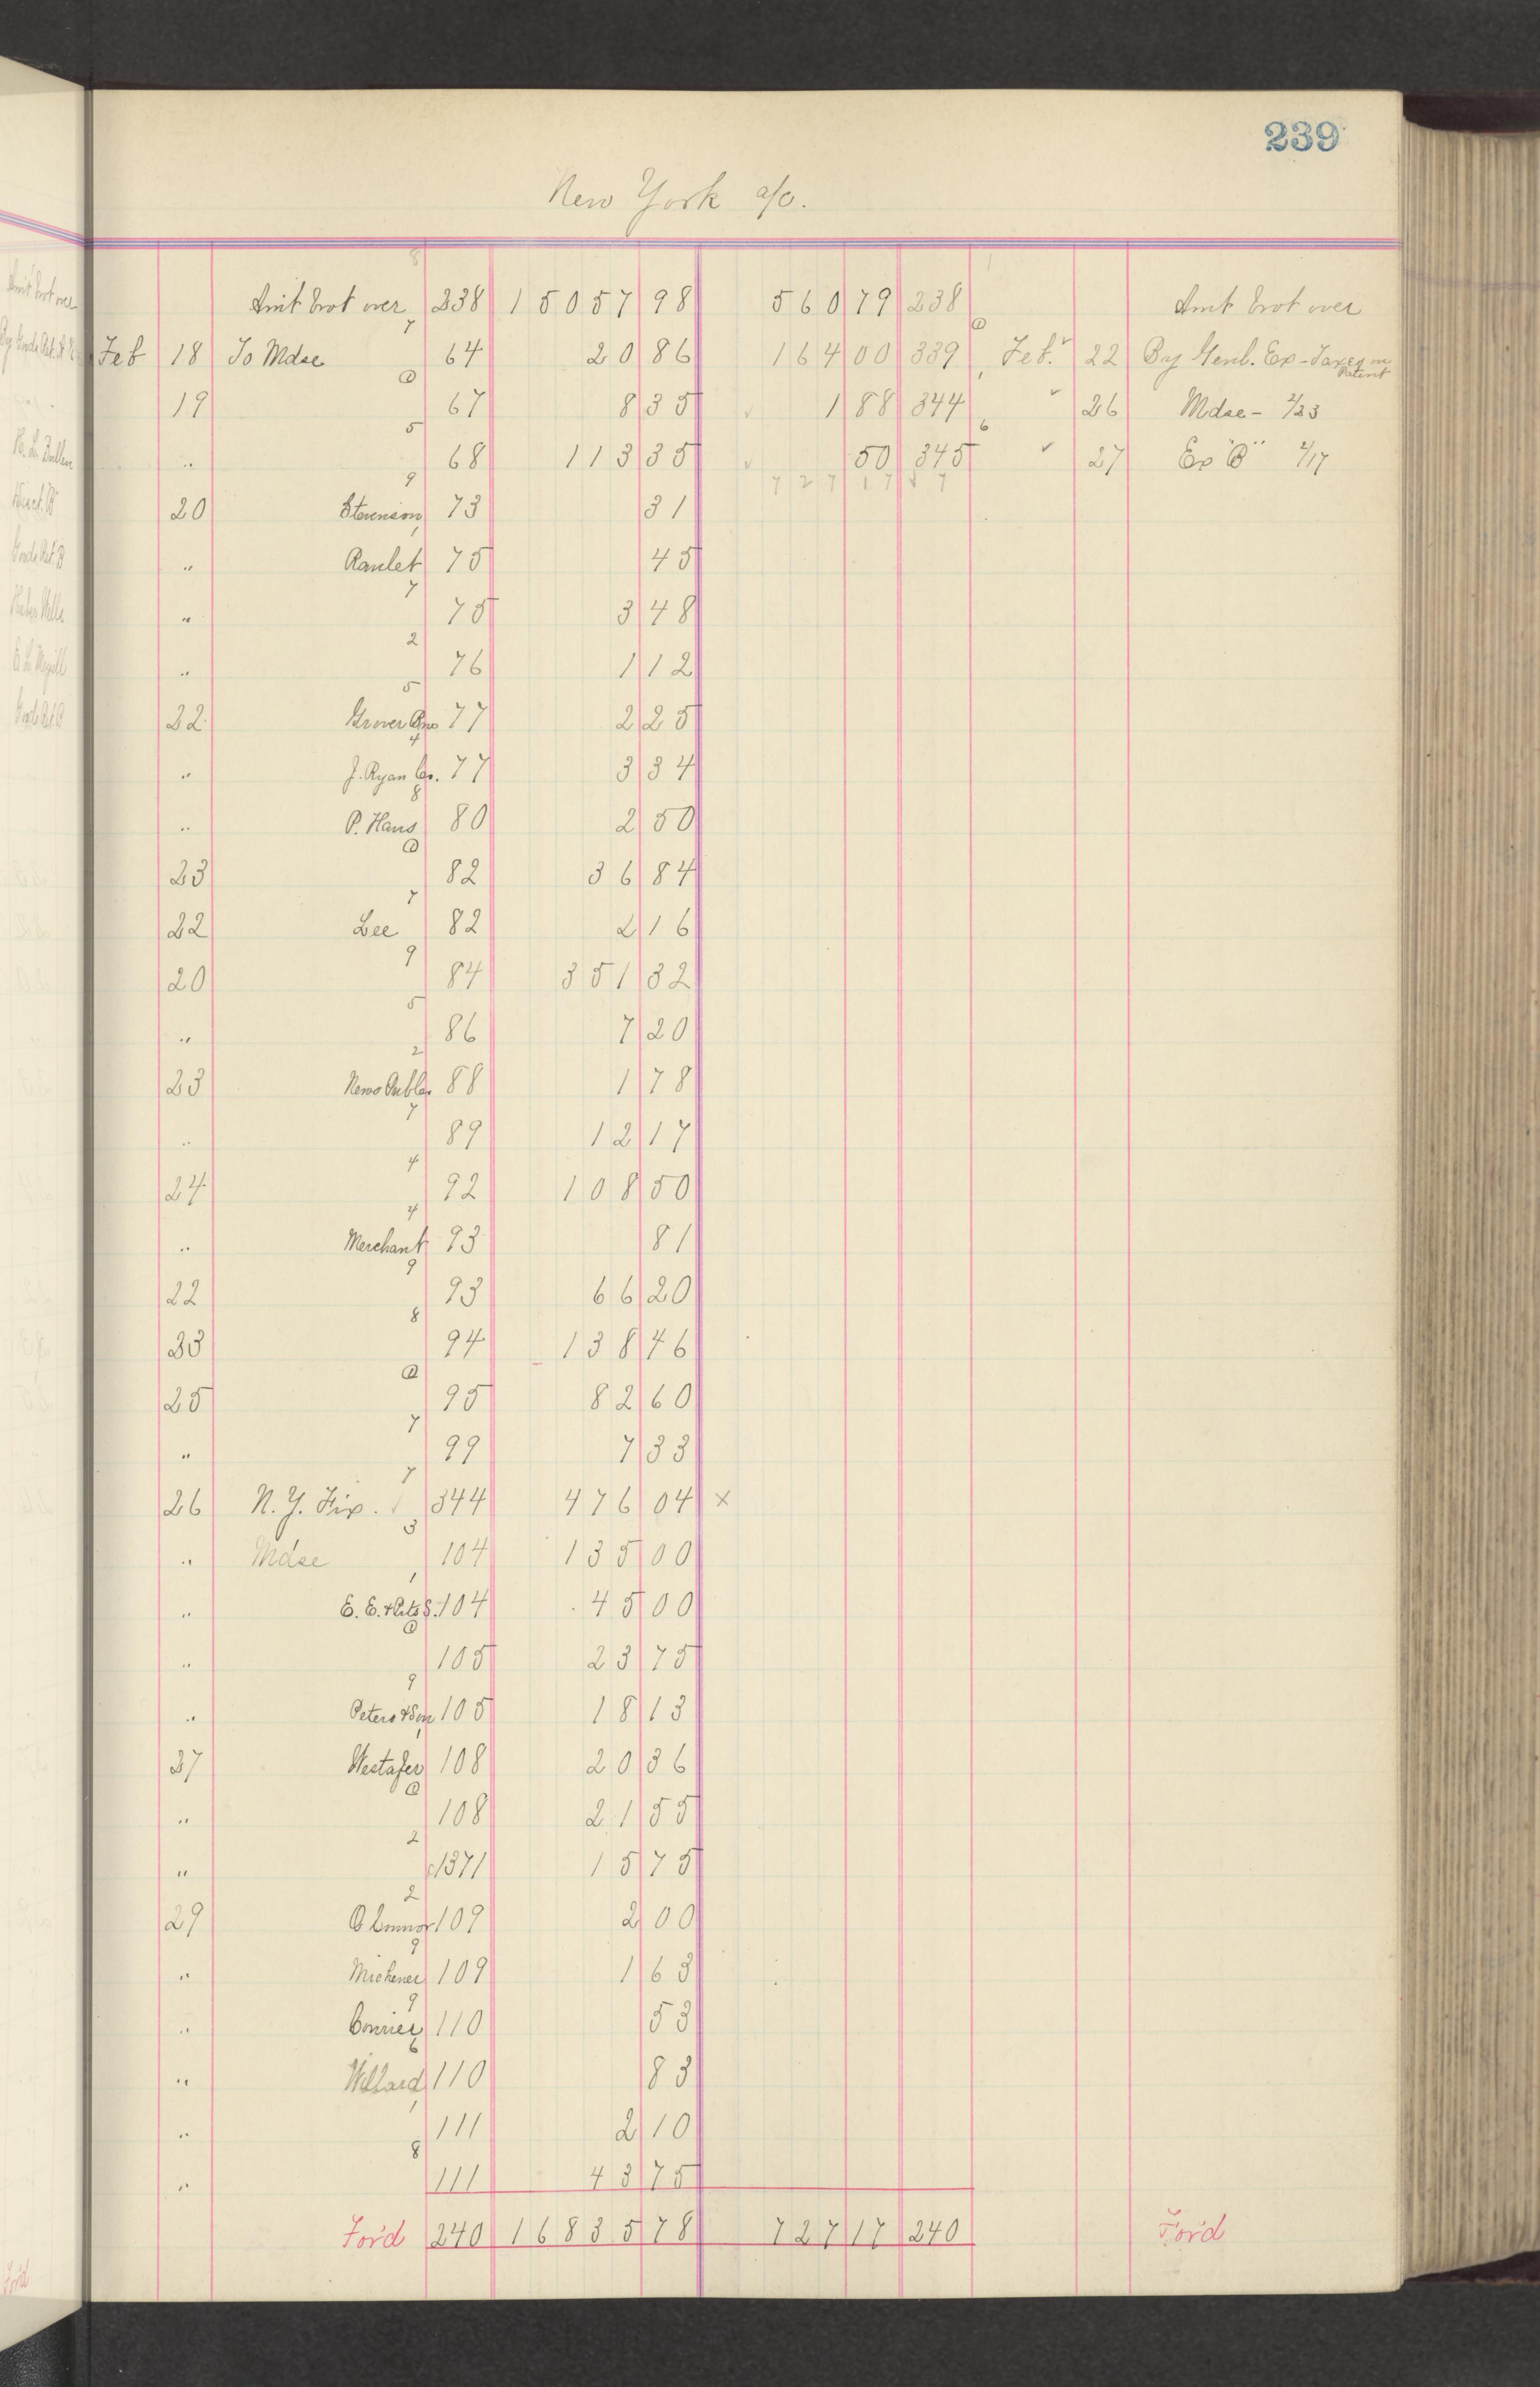 239
New York a/c.
Amt brot over 238 15057 98 560 79 238 Amt brot over
Feb 18 To Mdse 64 20 86 164 00 339 Feb. 22 By Genl. Ex - Taxes on Patent
19 67 8 35 1 88 344 " 26 Mdse - 2/23
" 68 113 35 50 345 " 27 Ex "B" 2/17
727 17
20 Stevenson 73 31
" Ranlet 75 45
" 75 3 48
" 76 1 12
22 Grover Bros 77 2 25
" J. Ryan Co. 77 3 34
" P. Hans 80 2 50
23 82 36 84
22 Lee 82 2 16
20 84 351 32
" 86 7 20
23 News Pub Co. 88 1 78
" 89 12 17
24 92 108 50
" Merchant 93 81
22 93 66 20
23 94 138 46
25 95 82 60
" 99 7 33
26 N. Y. Fix. 344 476 04 x
" Mdse 104 135 00
" E. E. & Pts S. 104 45 00
" 105 23 75
" Peters & Son 105 18 13
27 Westafer 108 20 36
" 108 21 55
" c/371 15 75
29 O'Connor 109 2 00
" Michener 109 1 63
" Courier 110 53
" Willard 110 83
" 111 2 10
" 111 43 75
For'd 240 16835 78 727 17 240 For'd